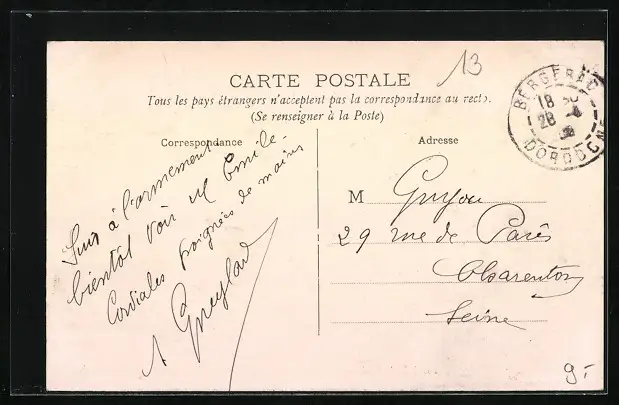 13
CARTE POSTALE
Tous les pays étrangers n'acceptent pas la correspondance au recto.
(Se renseigner à la Poste)
Correspondance
Suis à l'armement
bientôt voir M Emile -
Cordiales poignées de mains
A
Adresse
M Guyou
29 rue de Paris
Charenton
Seine
BERGERAC
18
28
DORDOGNE
9.-